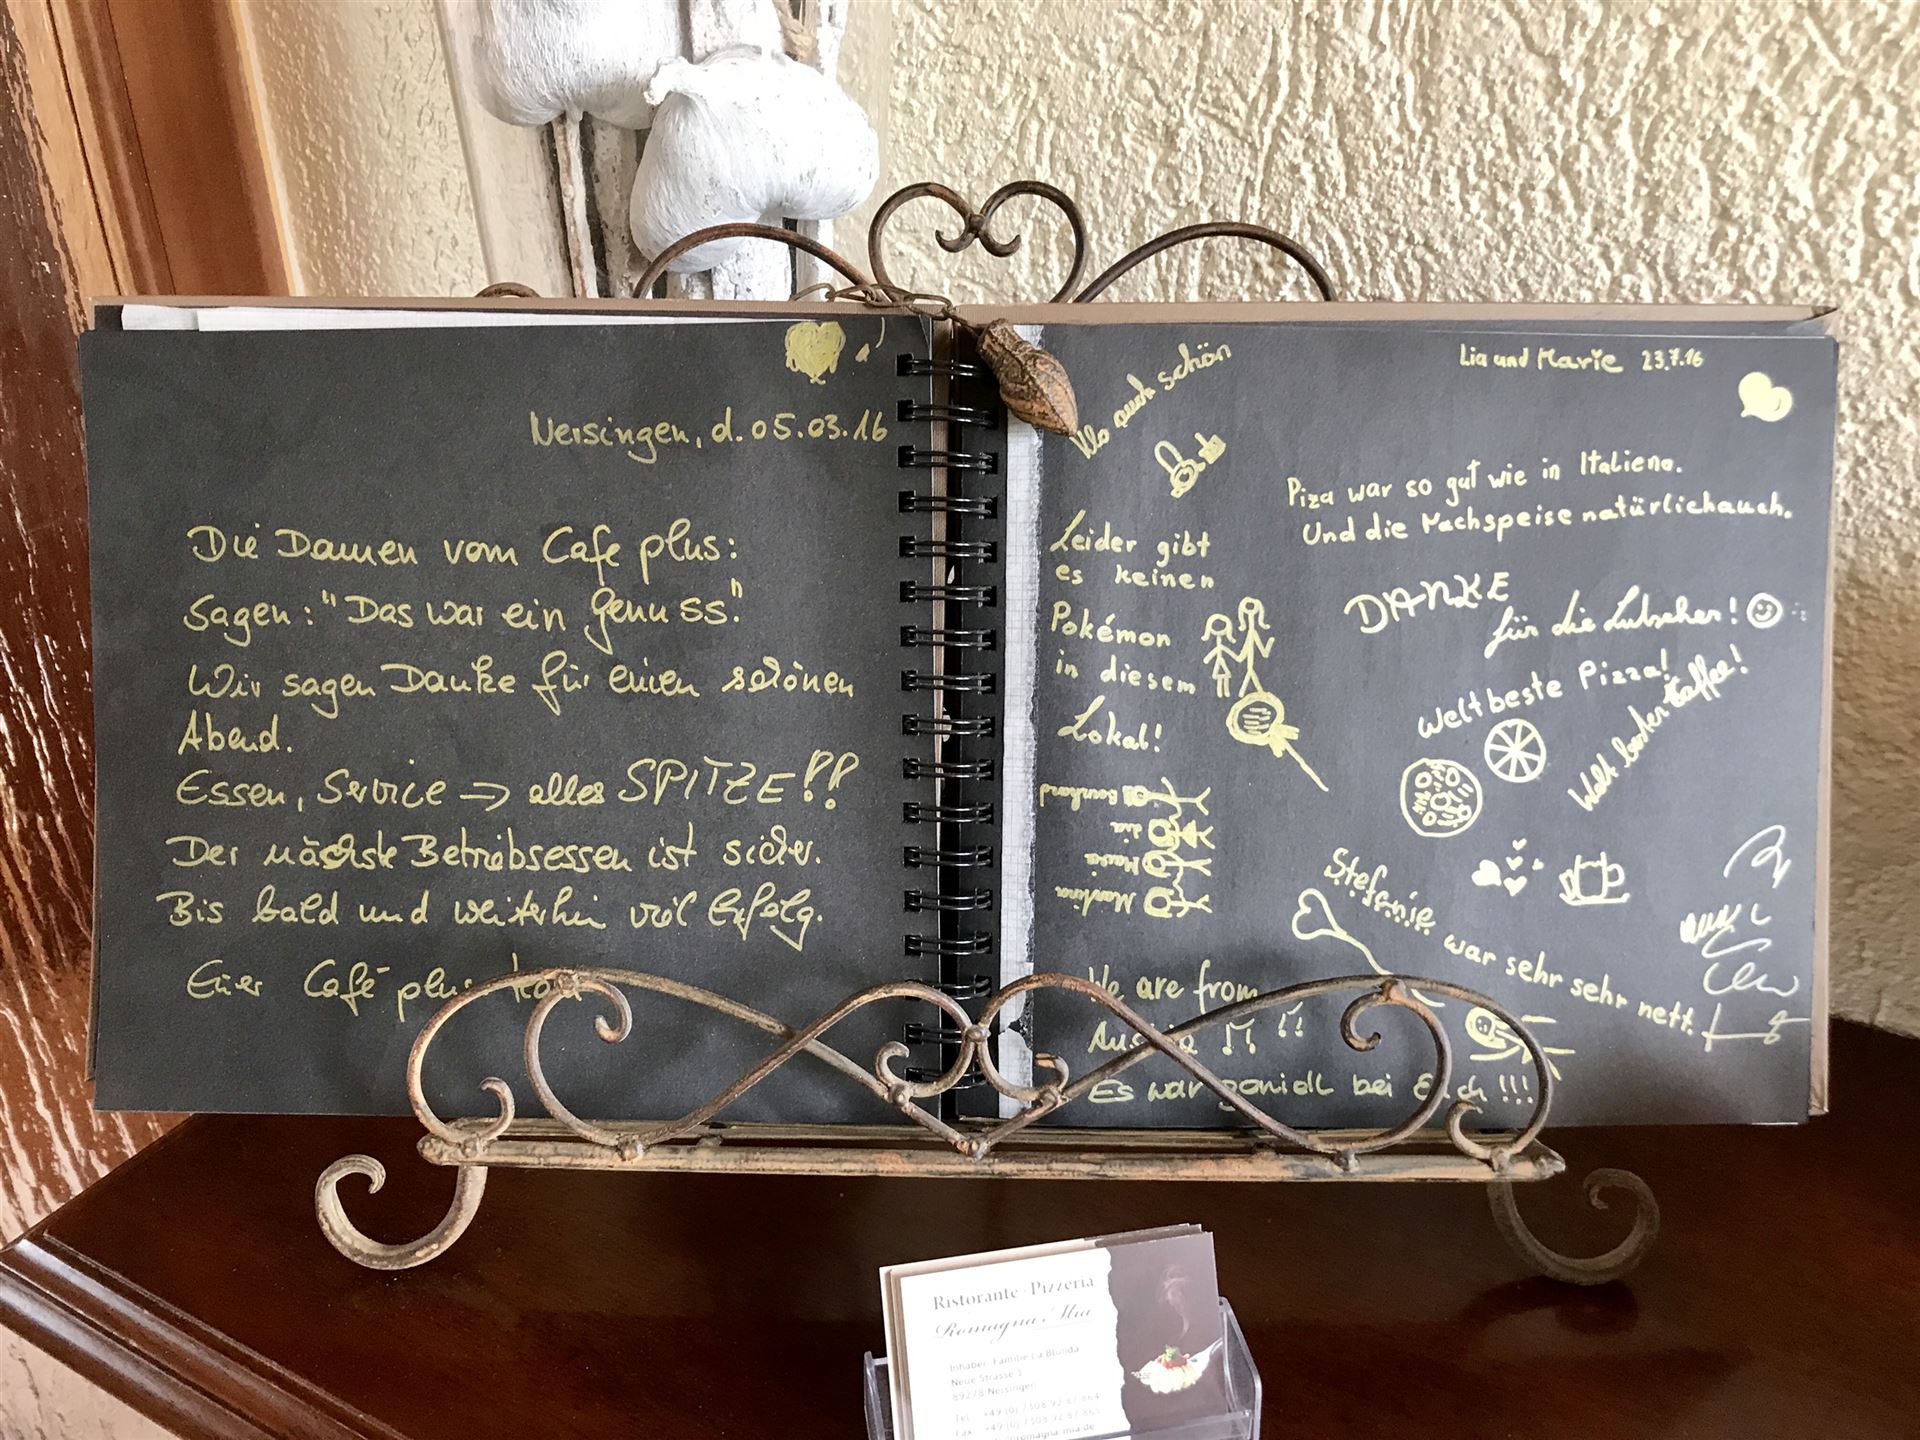 Nersingen, d. 05.03.16
Die Damen vom Cafe plus:
sagen: "Das war ein Genuss".
Wir sagen Danke für einen schönen
Abend.
Essen, Service → alles SPITZE!!
Der nächste Betriebsessen ist sicher.
Bis bald und weiterhin viel Erfolg.
Euer Café plus
Klo auch schön
Leider gibt
es keinen
Pokémon
in diesem
Lokal!
Bernhard
Lia
Maria
Martina
We are from
Es war geniell bei Euch!!!
Lia und Marie 23.7.16
Piza war so gut wie in Italieno.
Und die Nachspeise natürlichauch.
DANKE
für die Lutscher!
weltbeste Pizza!
Welt bester Kaffee!
Stefanie war sehr sehr nett.
Ristorante · Pizzeria
Romagna Mia
Inhaber: Familie La Blunda
Neue Strasse 1
89278 Nersingen
Tel. +49 (0) 7308 92 87 864
Fax +49 (0) 7308 92 87 865